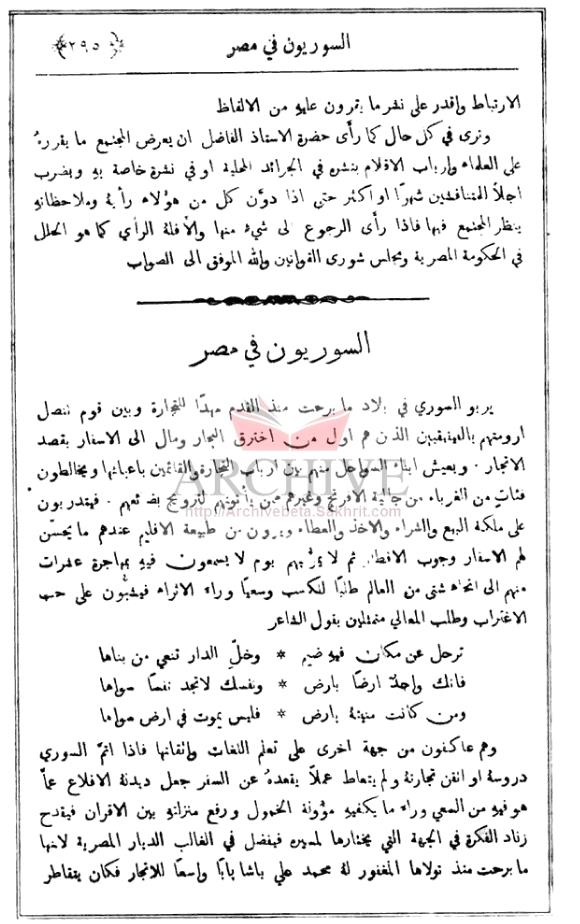 السوريون في مصر
﴿٢٩٥﴾
الارتباط واقدر على نشر ما يتمرون عليه من الالفاظ
ونرى في كل حال كما رأى حضرة الاستاذ الفاضل ان يعرض المجتمع ما يقررهُ
على العلماء وارباب الاقلام بنشره في الجرائد المحلية او في نشرة خاصة به ويضرب
اجلاً للمتنافشين شهرًا او اكثر حتى اذا دوَّن كل من هؤلاء رأيهُ وملاحظاتهِ
ينظر المجتمع فيها فاذا رأى الرجوع الى شيء منها والاَّ فلهُ الرأي كما هو الحال
في الحكومة المصرية ومجلس شورى القوانين والله الموفق الى الصواب
السوريون في مصر
يربو السوري في بلاد ما برحت منذ القدم مهدًا للتجارة وبين قوم تتصل
ارومتهم بالفينيقيين الذين هم اول من اخترق البحار ومال الى الاسفار بقصد
الاتجار . ويعيش ابناء السواحل منهم بين ارباب التجارة والقائمين باعبائها ويخالطون
فئاتٍ من الغرباء من جالية الافرنج وغيرهم ممن يأتونهم لترويج بضائعهم . فيتدربون
على ملكة البيع والشراء والاخذ والعطاء ويرون من طبيعة الاقليم عندهم ما يحسّن
لهم الاسفار وجوب الاقطار ثم لا يمرُّ بهم يوم لا يسمعون فيهِ بمهاجرة عشرات
منهم الى انحاء شتى من العالم طلبًا للكسب وسعيًا وراء الاثراء فيشبُّون على حب
الاغتراب وطلب المعالي متمثلين بقول الشاعر
ترحل عن مكان فيهِ ضيم * وخلِّ الدار تنعي من بناها
فانك واجدٌ ارضًا بارض * ونفسك لا تجد نفسًا سواها
ومن كانت منيتهُ بارض * فليس يموت في ارض سواها
وهم عاكفون من جهة اخرى على تعلم اللغات واتقانها فاذا اتمَّ السوري
دروسهُ او اتقن تجارتهُ ولم يتعاط عملاً يقعدهُ عن السفر جعل ديدنهُ الاقلاع عمَّا
هو فيهِ من السعي وراء ما يكفيهِ مؤونة الخمول ورفع منزلتهِ بين الاقران فيقدح
زناد الفكرة في الجهة التي يختارها لمسيره فيفضل في الغالب الديار المصرية لانها
ما برحت منذ تولاها المغفور لهُ محمد علي باشا بابًا واسعًا للاتجار فكان يتقاطر
ARCHIVE
http://Archivebeta.Sakhrit.com